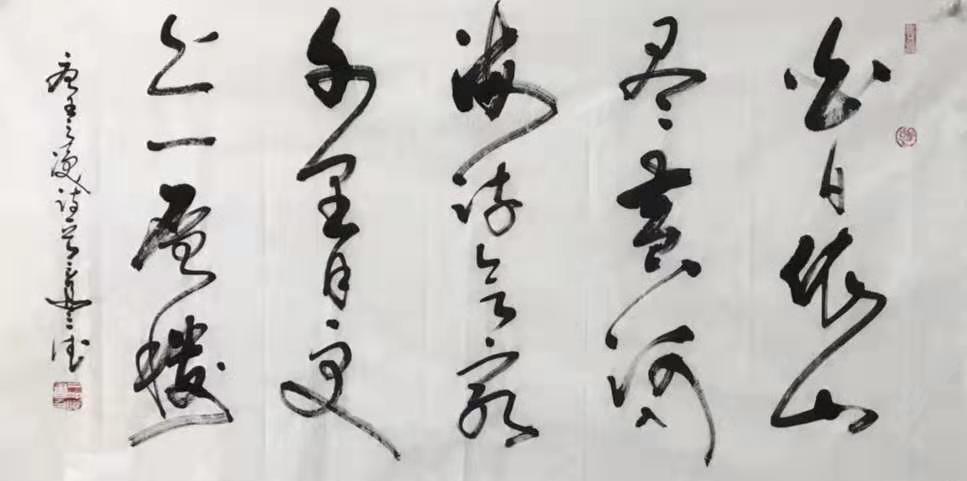 白日依山
尽黄河入
海流欲穷
千里目更
上一层楼
唐王之涣诗一首